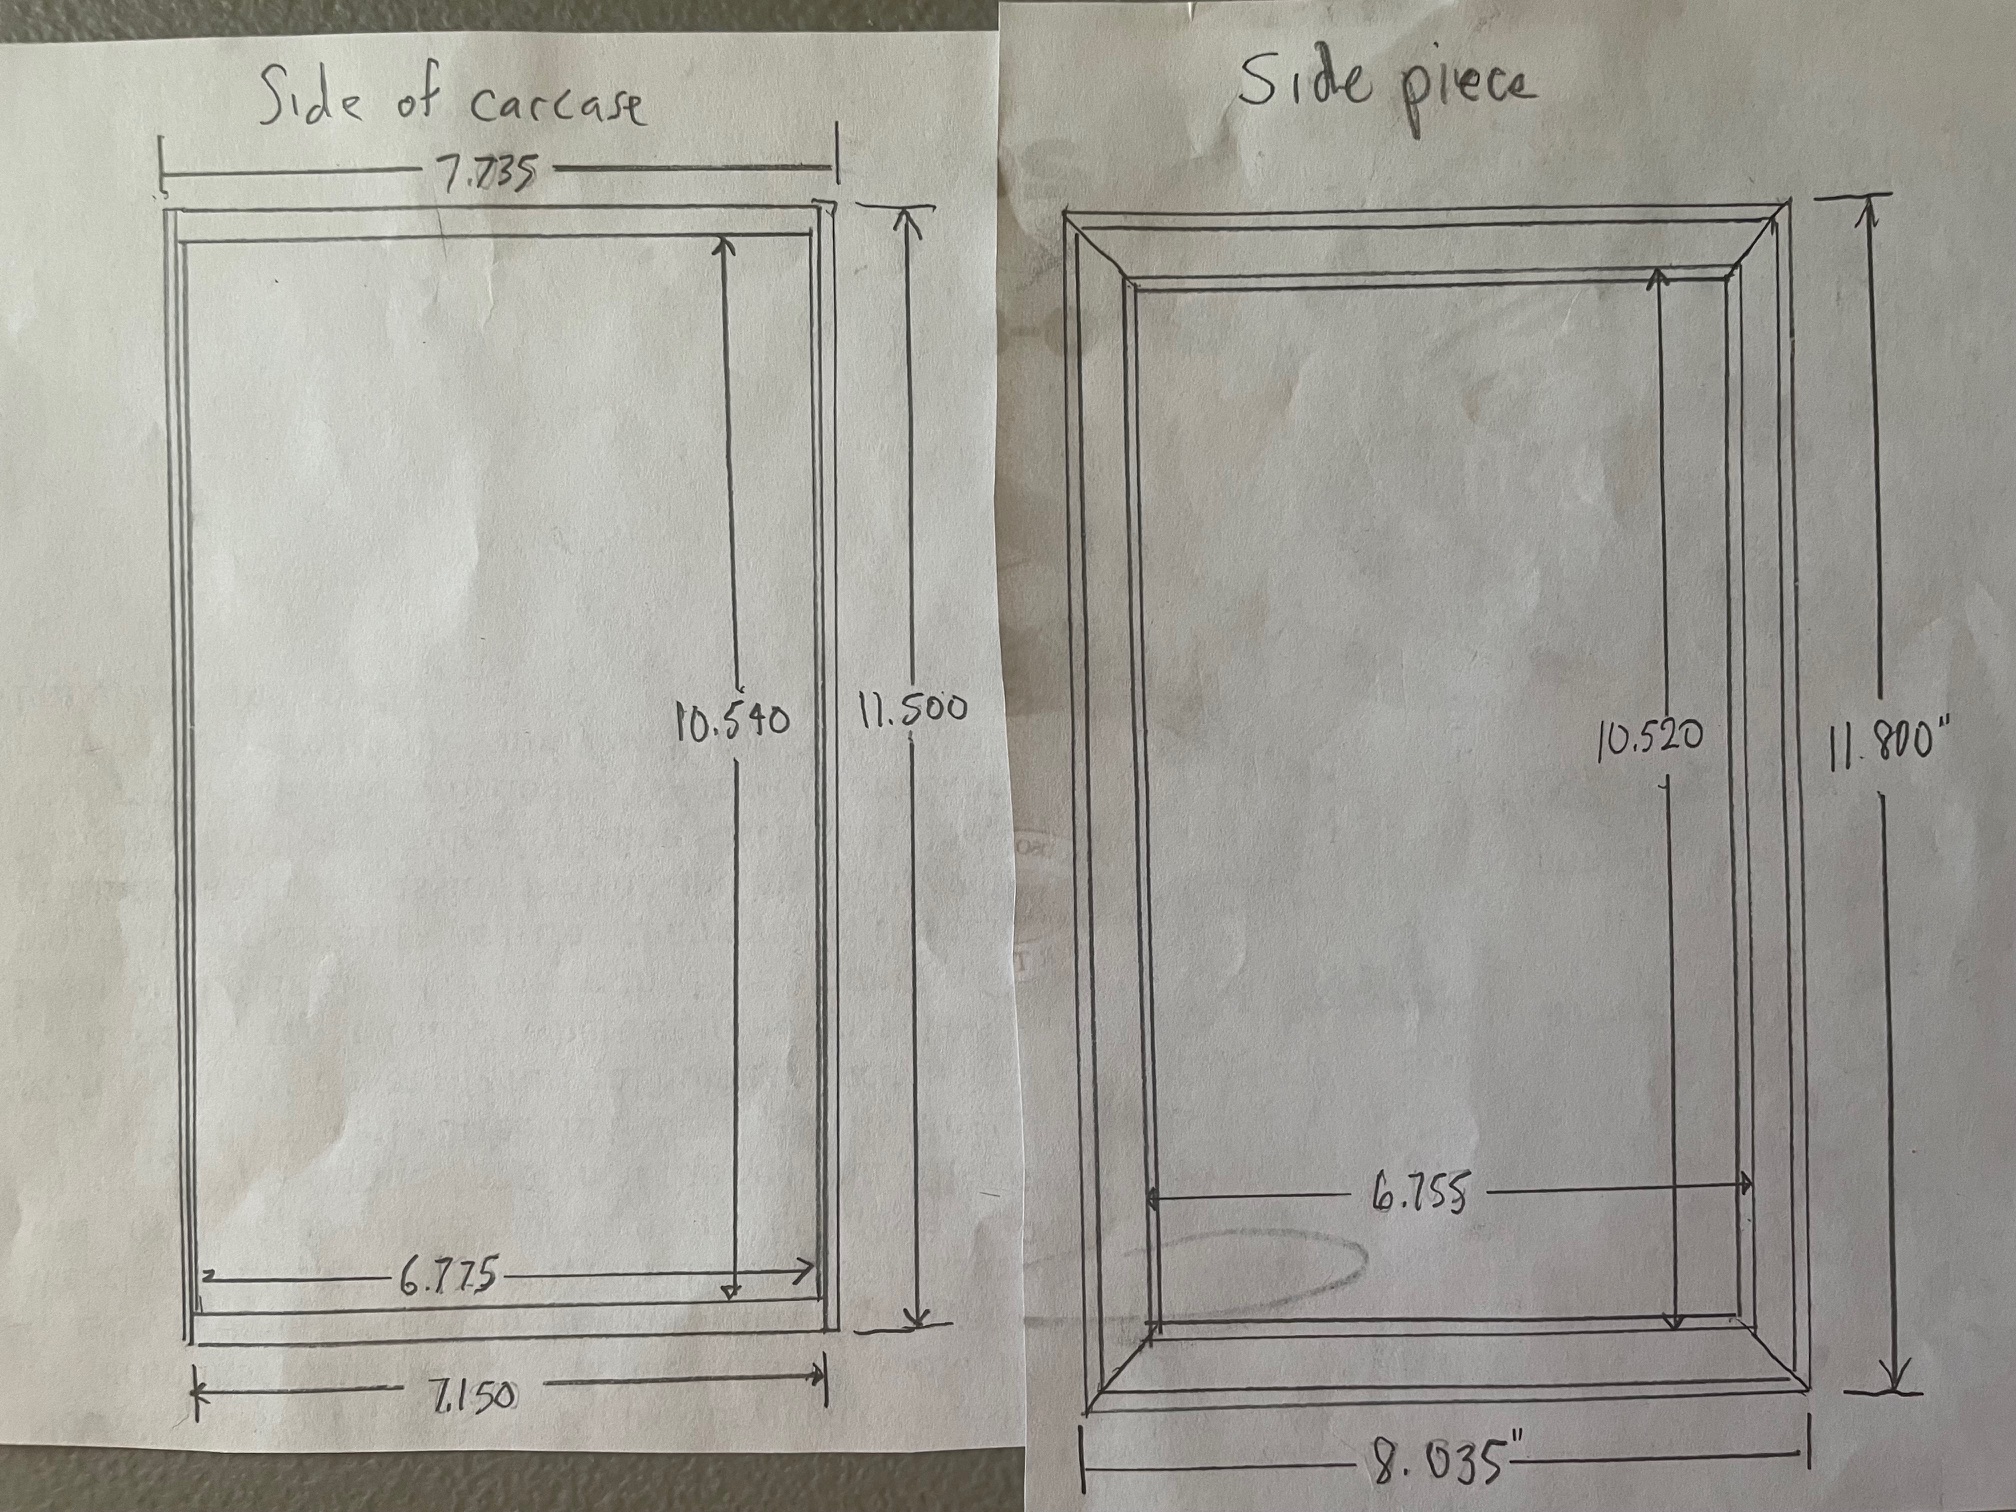 Side of carcase
7.735
10.540
11.500
6.775
7.150
Side piece
10.520
11.800"
6.755
8.035"